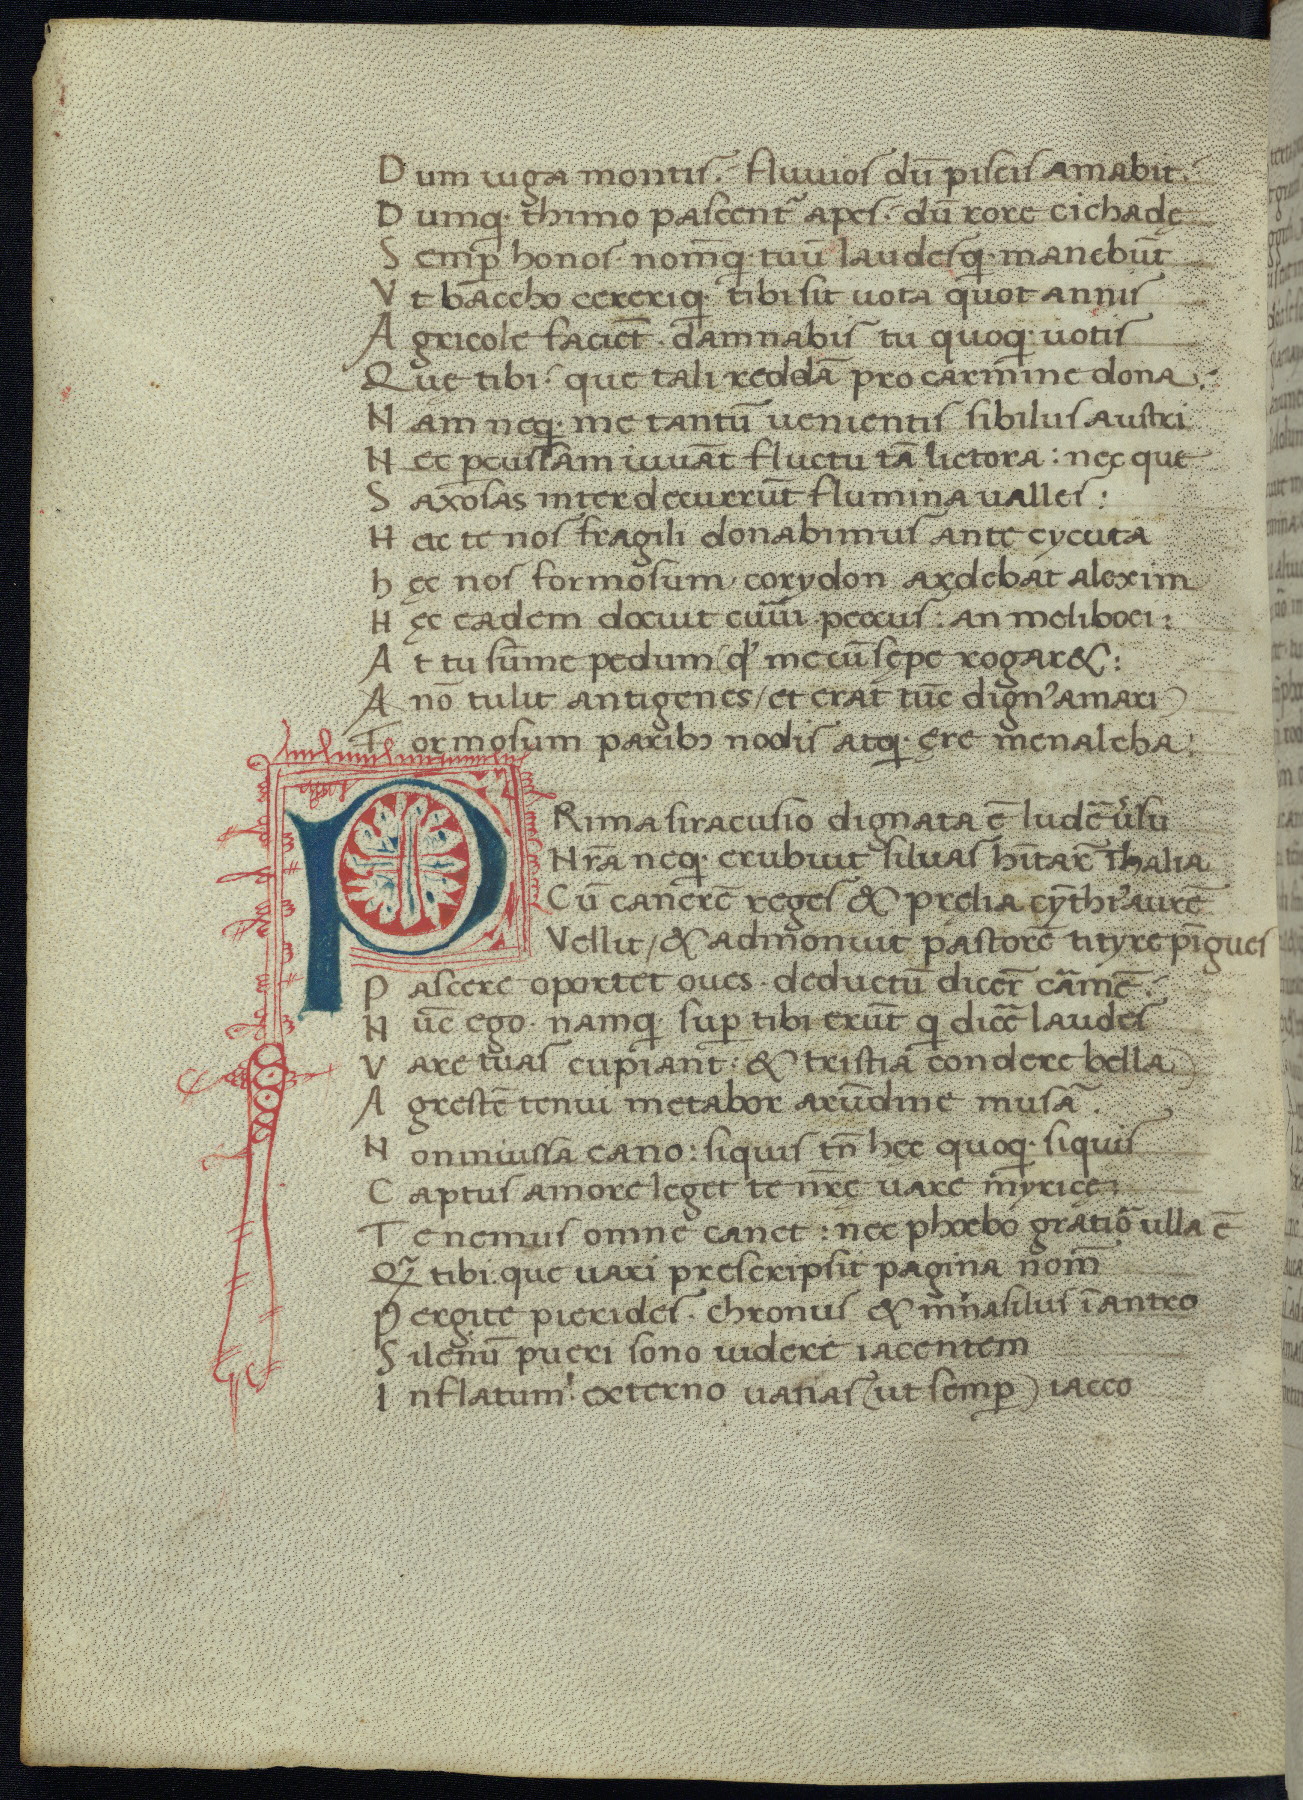 Dum iuga montis. fluuios dū piscis amabit.
Dumq; thimo pascent᷑ apes. dū rore cichadę
Semꝑ honos. nom̄q; tuū laudesq; manebūt
Vt baccho cereriq; tibi sic uota quot annis
Agricole faciēt. damnabis tu quoq; uotis
Que tibi. que tali reddā pro carmine dona.
Nam neq; me tantū uenientis sibilus austri
Nec ꝑcussam iuuāt fluctu tā lictora: nec que
Saxosas inter decurrūt flumina valles:
Hac te nos fragili donabimus ante cycuta
hęc nos formosum, corydon ardebat alexim
Hęc eadem docuit cuiū pecus: an meliboei:
At tu sūme pedum / qď me cū sepe rogar&:
A nō tulit antigenes / et erat tūc dignꝰ amari
Formosum paribꝫ nodis atq; ęre menalcha:
PRima siracusio dignata ē ludē ůsu
Nrā neq; erubuit siluas hītar̄ thalia
Cū canerē reges & prelia cȳthiꝰ aurē
Vellit / & admonuit pastorē tityre pīgues
Pascere oportet oues. deductū dicer̄ cāmē.
Nūc ego. namq; suꝑ tibi erūt q̄ dicē laudes
Vare tuas cupiant: & tristia condere bella
Agrestē tenui metabor arūdine musā.
Non iniussa cano: siquis tn̄ hec quoq; siquis
Captus amore leget te nr̄e uare myrice:
Te nemus omne canet: nec phoebo gratiō ulla ē
Q᷑ tibi que uari prescripsit pagina nom̄
Pergite pierides. chromis & mnasilus ī antro
Silenū pueri somno uidere iacentem
Inflatum externo uanas (ut semꝑ) iacco